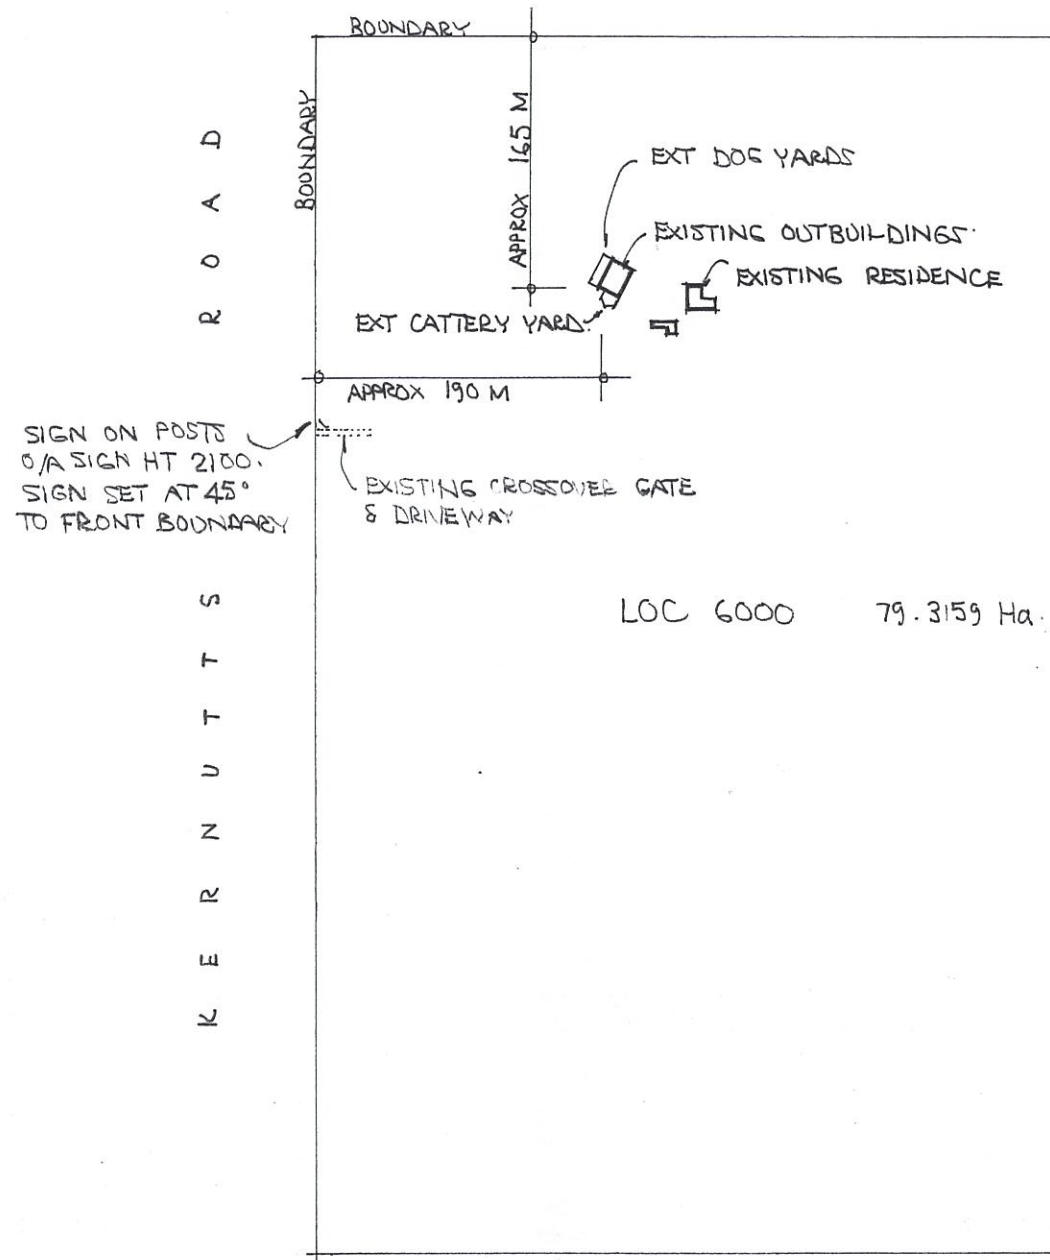 BOUNDARY
BOUNDARY
APPROX 165 M
EXT DOG YARDS
EXISTING OUTBUILDINGS.
EXISTING RESIDENCE
EXT CATTERY YARD.
APPROX 190 M
SIGN ON POSTS
O/A SIGN HT 2100.
SIGN SET AT 45°
TO FRONT BOUNDARY
EXISTING CROSSOVER GATE
& DRIVEWAY
LOC 6000 79.3159 Ha.
KERNUTTS ROAD